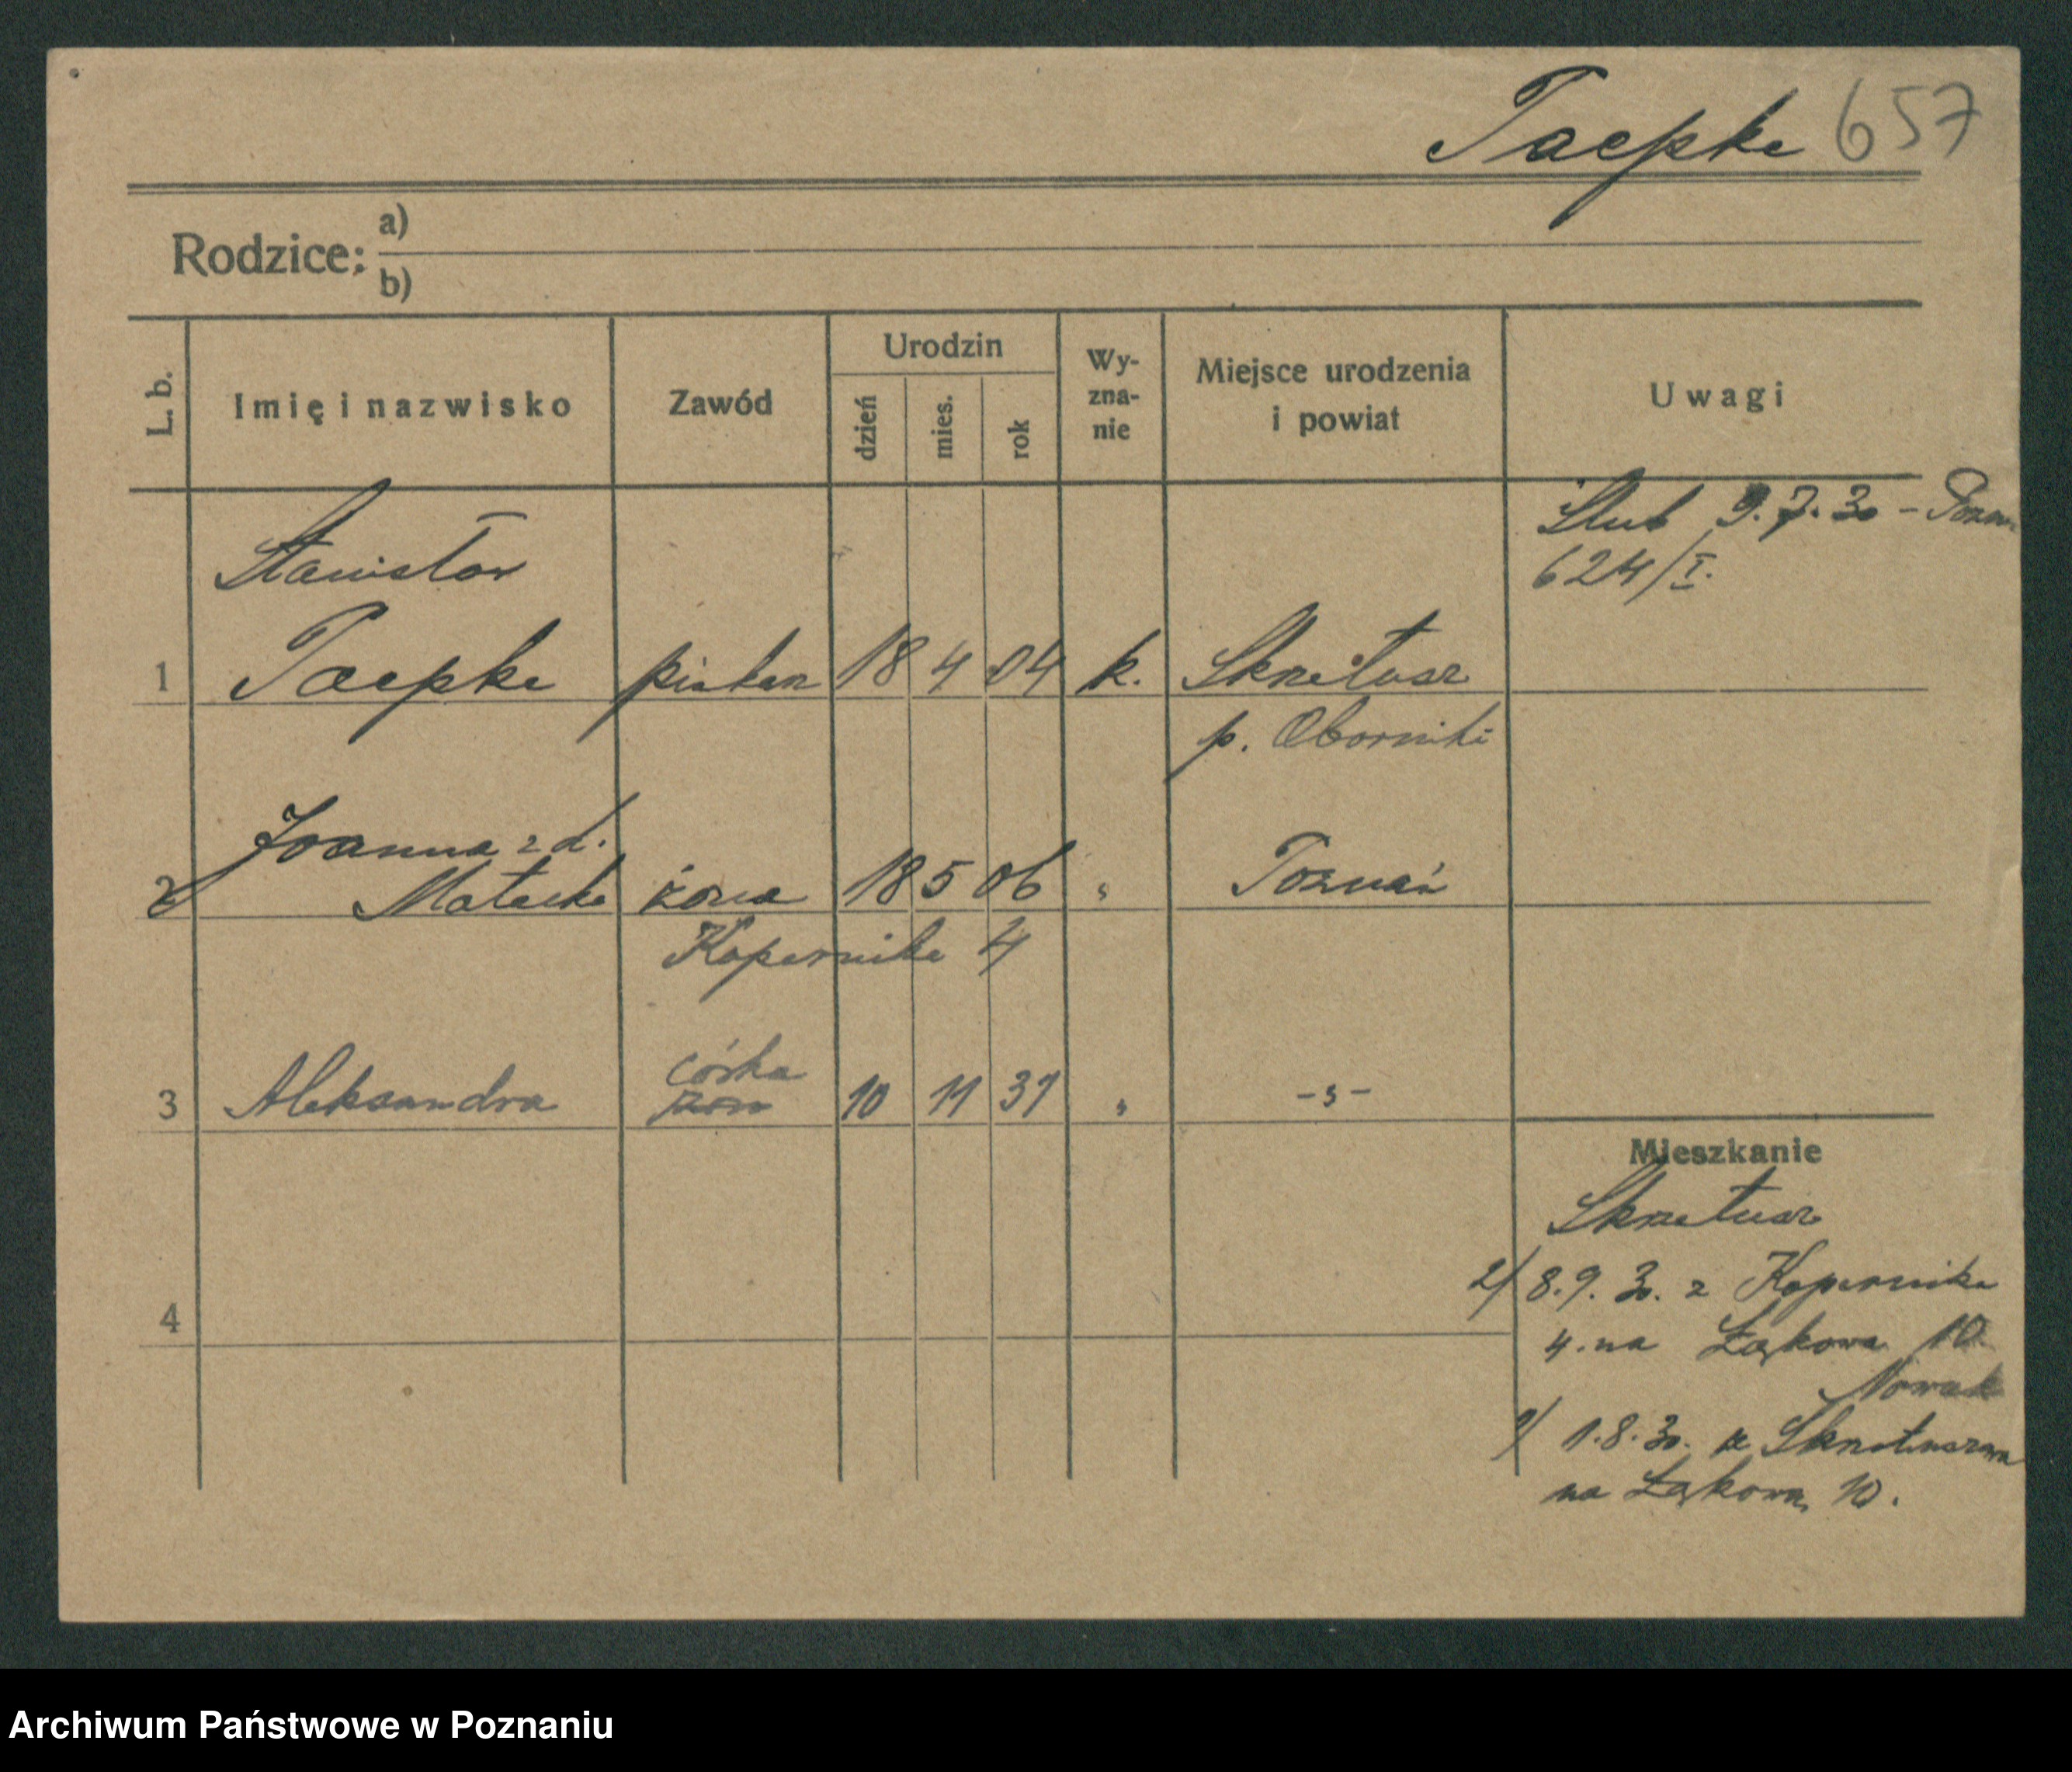 Taepke 657
Rodzice: a)
b)
L. b.
Imię i nazwisko
Zawód
Urodzin
dzień
mies.
rok
Wy-
zna-
nie
Miejsce urodzenia
i powiat
Uwagi
Ślub 9.7.30 - Pozn
624/I.
Stanisław
1 Taepke piekarz 18 4 04 k. Skrzetusz
p. Oborniki
Joanna z d.
2 Małecka żona 18 5 06 " Poznań
Kopernika 4
córka
3 Aleksandra 10 11 31 " -"-
Mieszkanie
Skrzetusz
2/ 8.9.30. z Kopernika
4. na Łąkowa 10
Nowak
4
1/ 1.8.30. ze Skrzetusza
na Łąkowa 10.
Archiwum Państwowe w Poznaniu